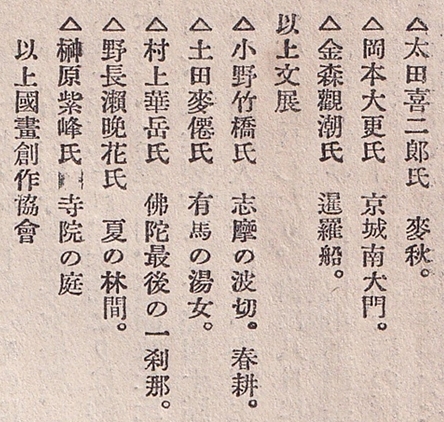 △太田喜二郎氏　麥秋。
△岡本大更氏　京城南大門。
△金森觀潮氏　暹羅船。
以上文展
△小野竹橋氏　志摩の波切。春耕。
△土田麥僊氏　有馬の湯女。
△村上華岳氏　佛陀最後の一刹那。
△野長瀨晩花氏　夏の林間。
△榊原紫峰氏　寺院の庭
以上國畫創作協會